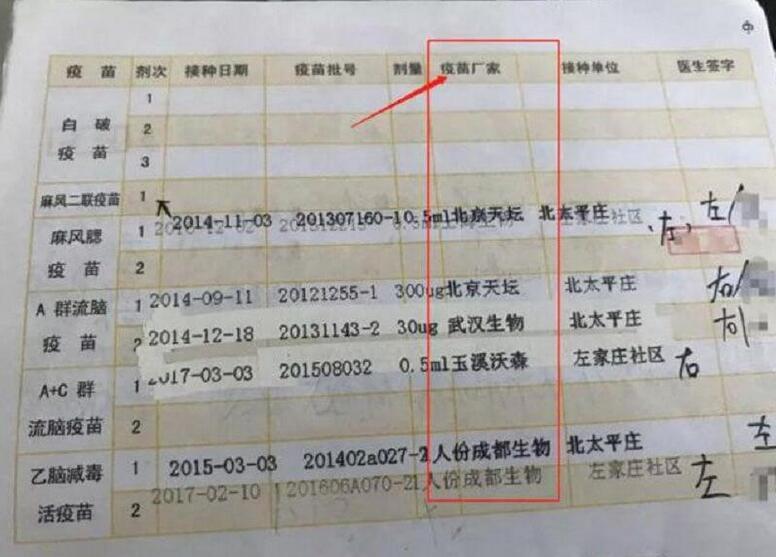 疫苗 剂次 接种日期 疫苗批号 剂量 疫苗厂家 接种单位 医生签字
白破疫苗 1
2
3
麻风二联疫苗 1 2014-11-03 201307160-1 0.5ml 北京天坛 北太平庄 左
麻风腮疫苗 1 社区 左
2
A群流脑疫苗 1 2014-09-11 20121255-1 300ug 北京天坛 北太平庄 右
2 2014-12-18 20131143-2 30ug 武汉生物 北太平庄 右
A+C群流脑疫苗 1 2017-03-03 201508032 0.5ml 玉溪沃森 左家庄社区 右
2
乙脑减毒活疫苗 1 2015-03-03 201402a027-2 人份 成都生物 北太平庄 左
2 2017-02-10 201606A070-2 1人份 成都生物 左家庄社区 左